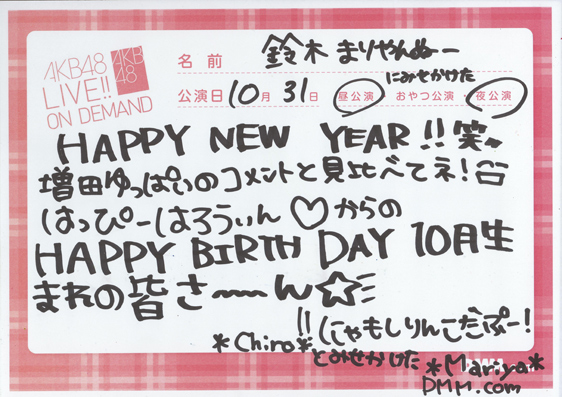 AKB48
LIVE!!
ON DEMAND
AKB
48
名前 鈴木まりやんぬー
にみせかけた
公演日 10月 31日 昼公演 ・ おやつ公演 ・ 夜公演
HAPPY NEW YEAR!!笑
増田ゆっぱぃのコメントと見比べてネ!
はっぴーはろうぃん♡からの
HAPPY BIRTH DAY 10月生
まれの皆さ〜ん☆
!!にゃもしりんこだぷー!
*Chiro*
とみせかけた *Mariya*
DMM.com